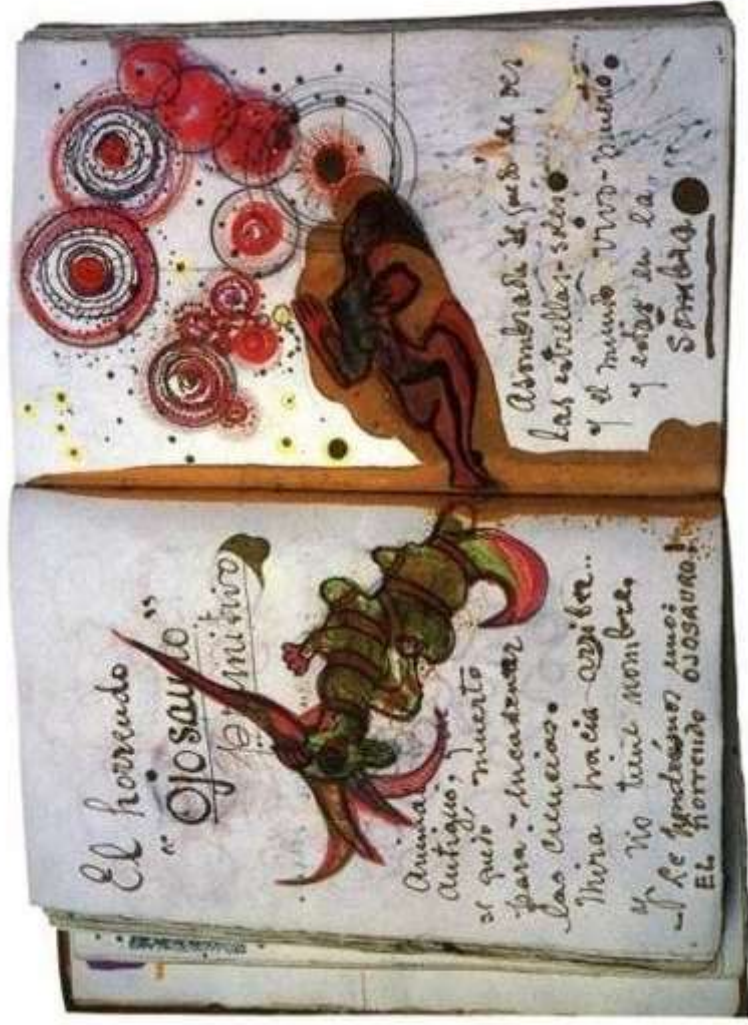 El horrendo
"OJOSAURO"
primitivo
Animal
antiguo, que
se quedó muerto
para encadenar
las ciencias.
Mira hacia arriba..
y no tiene nombre.
— Le pondremos uno:
EL horrendo OJOSAURO!
Asombrada se quedó de ver
las estrellas-soles
y el mundo vivo-muerto
y estar en la
sombra